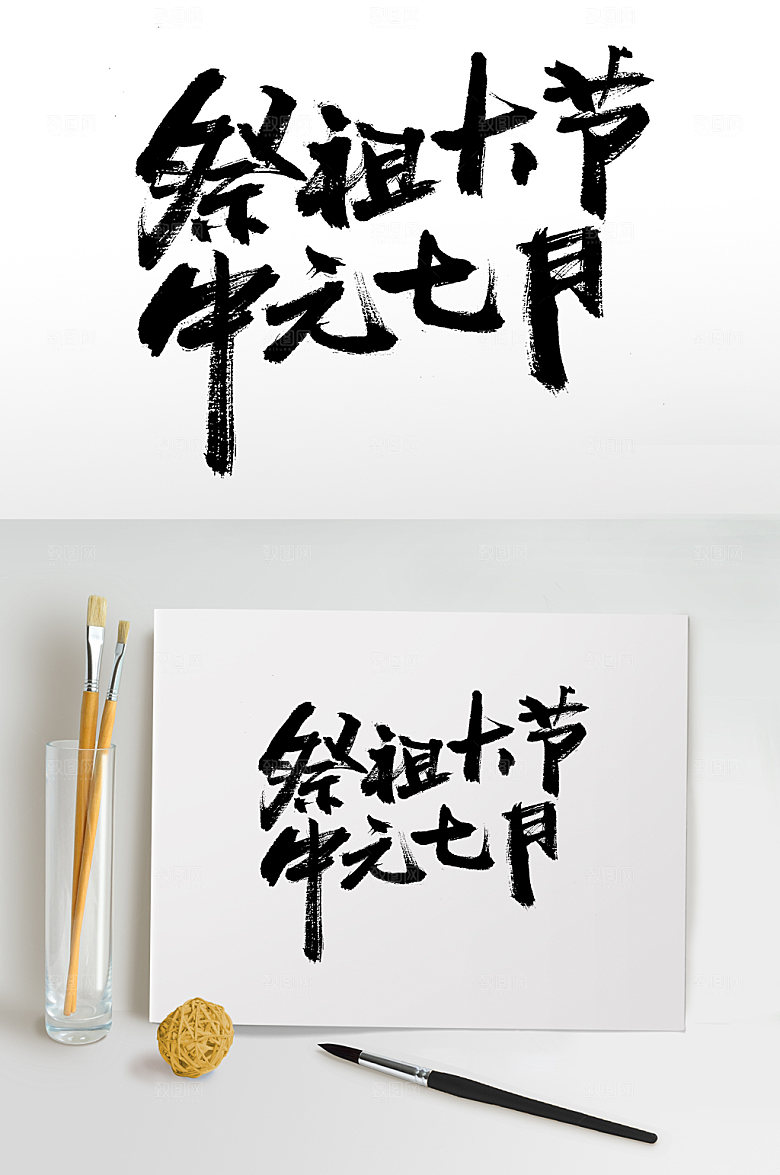 祭祖大节
中元七月
祭祖大节
中元七月